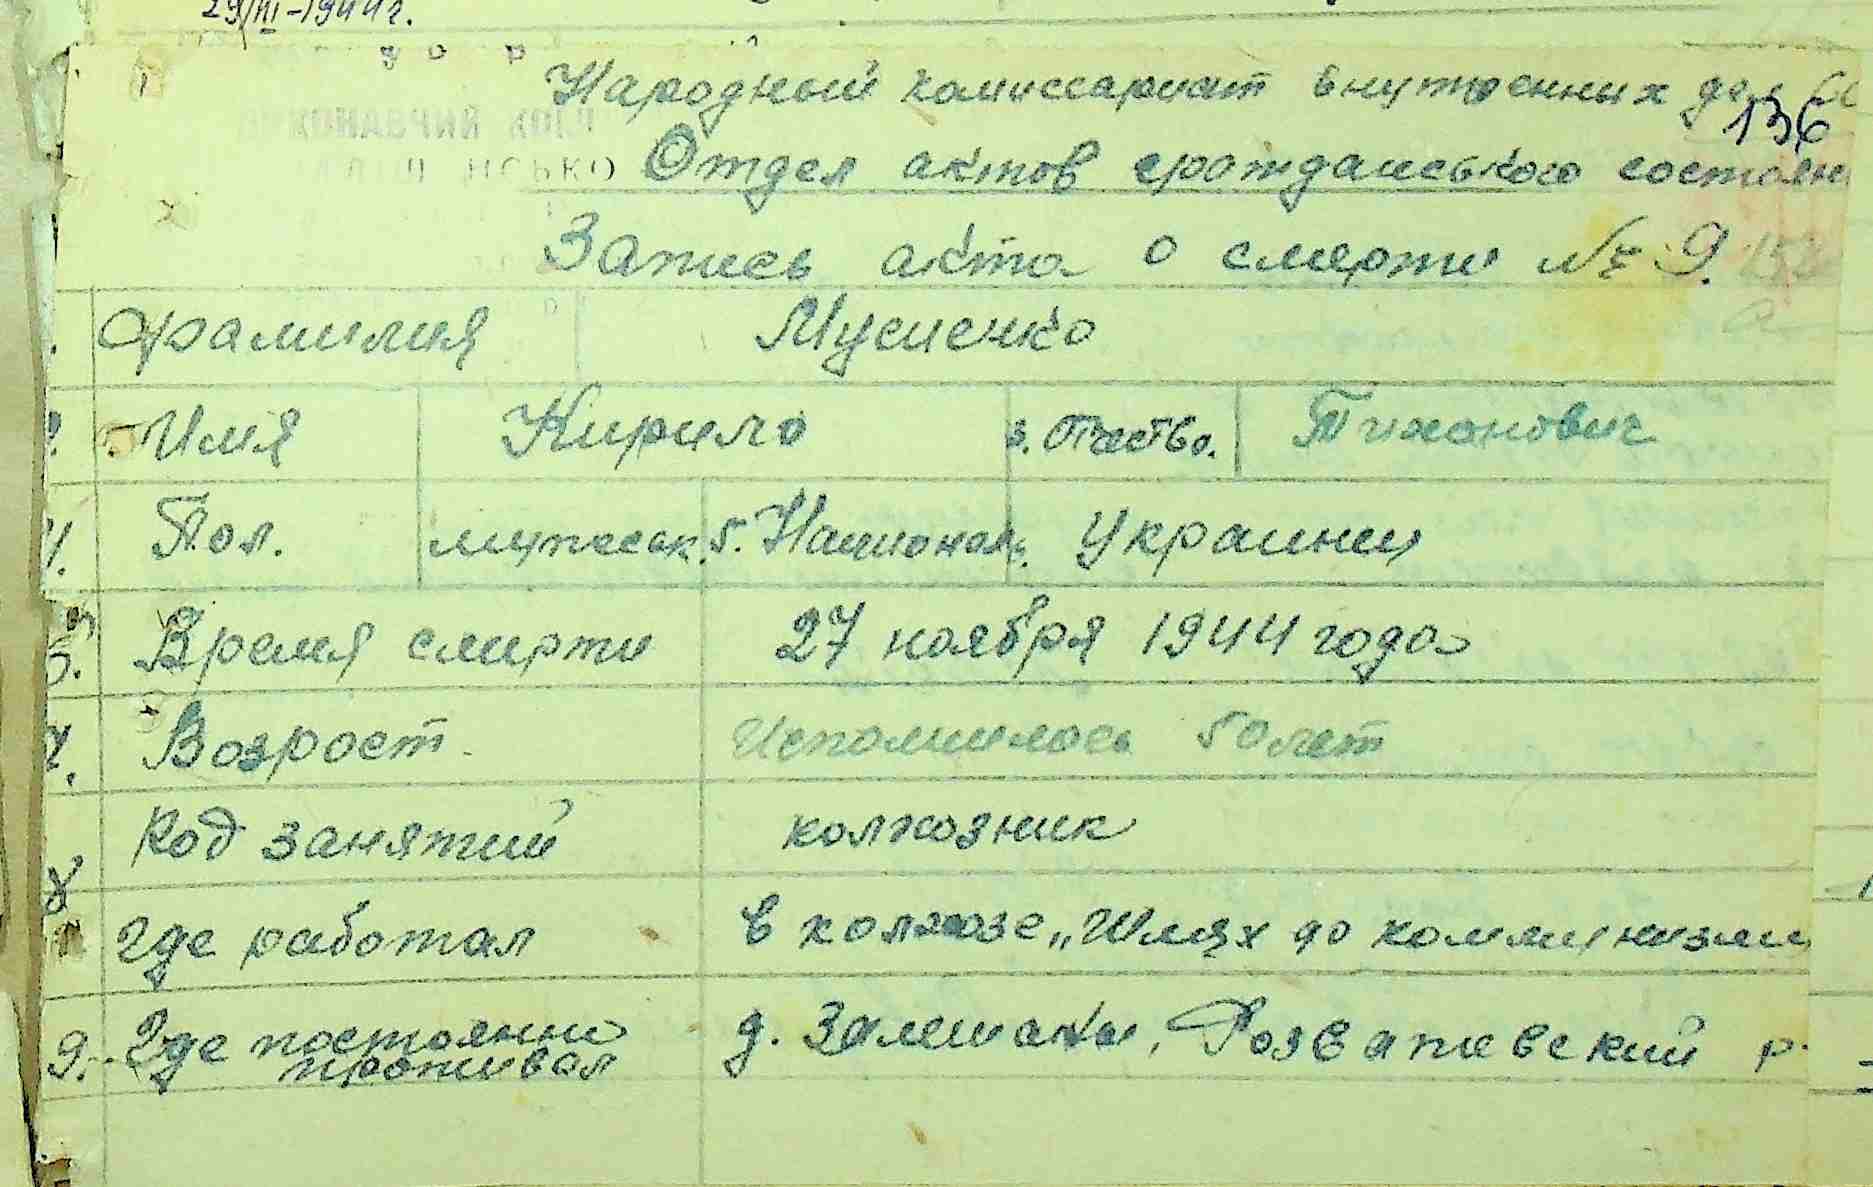 29/III-1944г.
Народный комиссариат внутренных дел
136
Отдел актов грожданського состоян
Запись акта о смерти № 9.
Фамилия Мусиенко
Имя Кирило 3. Отчество. Тихонович
4. Пол. мужеск. 5. Национал. Украинец
6. Время смерти 27 ноября 1944 года
7. Возрост. Исполнилось 50 лет
Род занятий колхозник
8
Где работал в колхозе „Шлях до коммунизму
9. Где постоянно проживал д. Залишаны, Розважевский р.